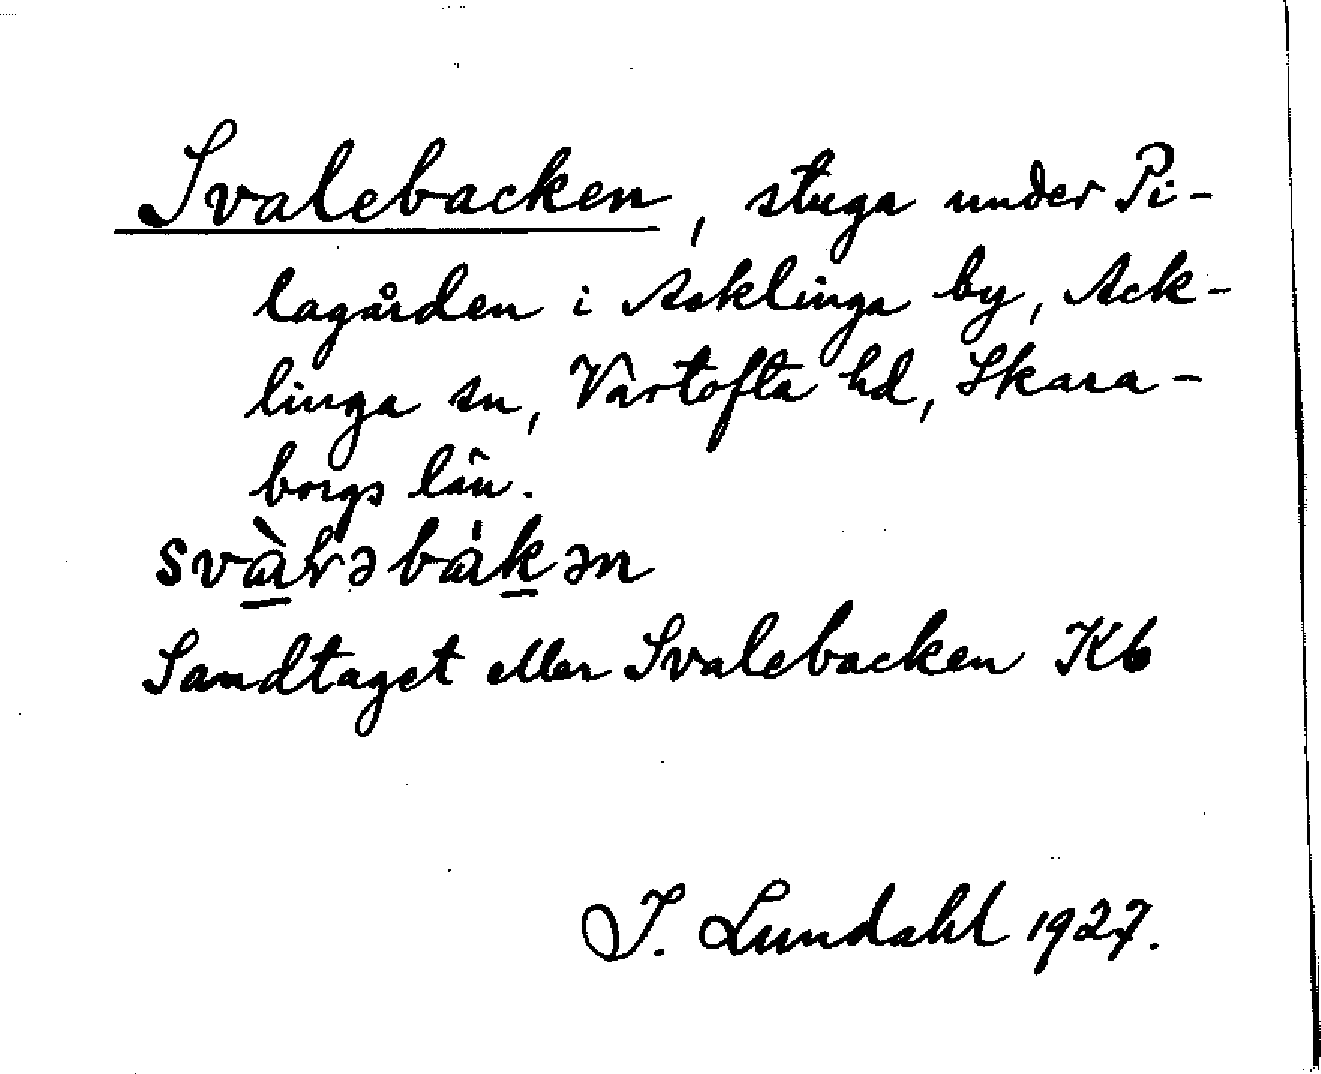 Svalebacken, stuga under Pi-
lagården i Acklinga by, Ack-
linga sn, Vartofta hd, Skara-
borgs län.
svàɽəbák̠ən
Sandtaget eller Svalebacken Kb
I. Lundahl 1927.